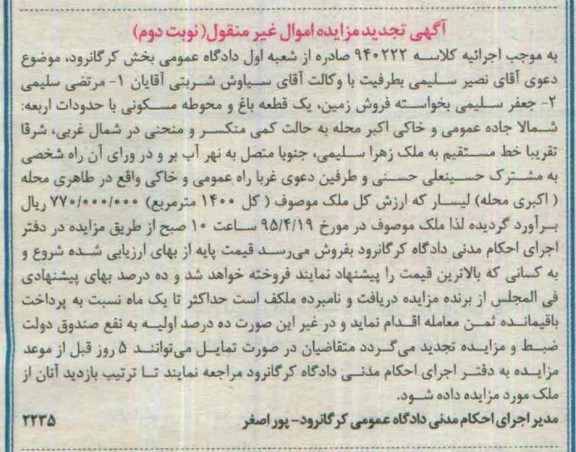 آگهی تجدید مزایده اموال غیر منقول (نوبت دوم)
به موجب اجرائیه کلاسه ۹۴۰۲۲۲ صادره از شعبه اول دادگاه عمومی بخش کرگانرود، موضوع
دعوی آقای نصیر سلیمی بطرفیت با وکالت آقای سیاوش شربتی آقایان ۱- مرتضی سلیمی
۲- جعفر سلیمی بخواسته فروش زمین، یک قطعه باغ و محوطه مسکونی با حدودات اربعه:
شمالا جاده عمومی و خاکی اکبر محله به حالت کمی منکسر و منحنی در شمال غربی، شرقا
تقریبا خط مستقیم به ملک زهرا سلیمی، جنوبا متصل به نهر آب بر و در ورای آن راه شخصی
به مشترک حسینعلی حسنی و طرفین دعوی غربا راه عمومی و خاکی واقع در طاهری محله
(اکبری محله) لیسار که ارزش کل ملک موصوف (کل ۱۴۰۰ مترمربع) ۷۷۰/۰۰۰/۰۰۰ ریال
برآورد گردیده لذا ملک موصوف در مورخ ۹۵/۴/۱۹ ساعت ۱۰ صبح از طریق مزایده در دفتر
اجرای احکام مدنی دادگاه کرگانرود بفروش می‌رسد قیمت پایه از بهای ارزیابی شده شروع و
به کسانی که بالاترین قیمت را پیشنهاد نمایند فروخته خواهد شد و ده درصد بهای پیشنهادی
فی المجلس از برنده مزایده دریافت و نامبرده ملکف است حداکثر تا یک ماه نسبت به پرداخت
باقیمانده ثمن معامله اقدام نماید و در غیر این صورت ده درصد اولیه به نفع صندوق دولت
ضبط و مزایده تجدید می‌گردد متقاضیان در صورت تمایل می‌توانند ۵ روز قبل از موعد
مزایده به دفتر اجرای احکام مدنی دادگاه کرگانرود مراجعه نمایند تا ترتیب بازدید آنان از
ملک مورد مزایده داده شود.
مدیر اجرای احکام مدنی دادگاه عمومی کرگانرود- پور اصغر ۲۲۳۵